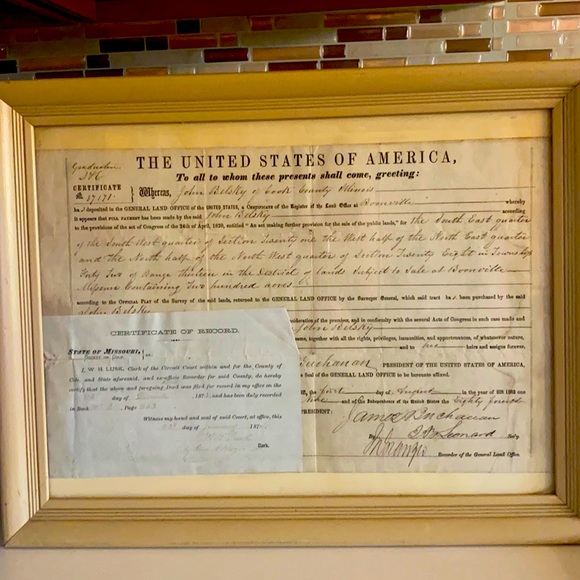 Graduation
346
THE UNITED STATES OF AMERICA,
To all to whom these presents shall come, greeting:
CERTIFICATE
No. 37171
Whereas, John Belsky of Cook County Illinois
ha s deposited in the GENERAL LAND OFFICE of the UNITED STATES, a Certificate of the Register of the Land Office at Boonville whereby
it appears that FULL PAYMENT has been made by the said John Belsky according
to the provisions of the act of Congress of the 24th of April, 1820, entitled "An act making further provision for the sale of the public lands," for the South East quarter
of the South West quarter of Section Twenty one the West half of the North East quarter
and the North half of the North West quarter of Section Twenty Eight in Township
Forty Two of Range thirteen in the District of lands Subject to Sale at Boonville
Missouri Containing Two hundred acres
according to the OFFICIAL PLAT of the Survey of the said lands, returned to the GENERAL LAND OFFICE by the Surveyor General, which said tract ha s been purchased by the said
John Belsky
consideration of the premises, and in conformity with the several Acts of Congress in such case made and
John Belsky
together with all the rights, privileges, immunities, and appurtenances, of whatsoever nature,
and to his heirs and assigns forever.
Buchanan PRESIDENT OF THE UNITED STATES OF AMERICA,
Seal of the GENERAL LAND OFFICE to be hereunto affixed.
the first day of August in the year of our Lord
and of the Independence of the United States the Eighty fourth
PRESIDENT: James Buchanan
By J. B. Leonard Sec'y.
Recorder of the General Land Office.
CERTIFICATE OF RECORD.
STATE OF MISSOURI,
COUNTY OF COLE
I, W. H. LUSK, Clerk of the Circuit Court within and for the County of
Cole, and State aforesaid, and ex-officio Recorder for said County, do hereby
certify that the above and foregoing Deed was filed for record in my office on the
day of 187 , and has been duly recorded
in Book Page
Witness my hand and seal of said Court, at office, this
day of 187
Clerk.